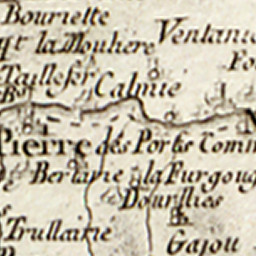 Bouriette
qt la Mouliere Ventani
Taillefer Calmié Fo
Bs
Pierre des Ports Comm
Berlame la Furgoug
Dourlies
Trullaine
Gajou